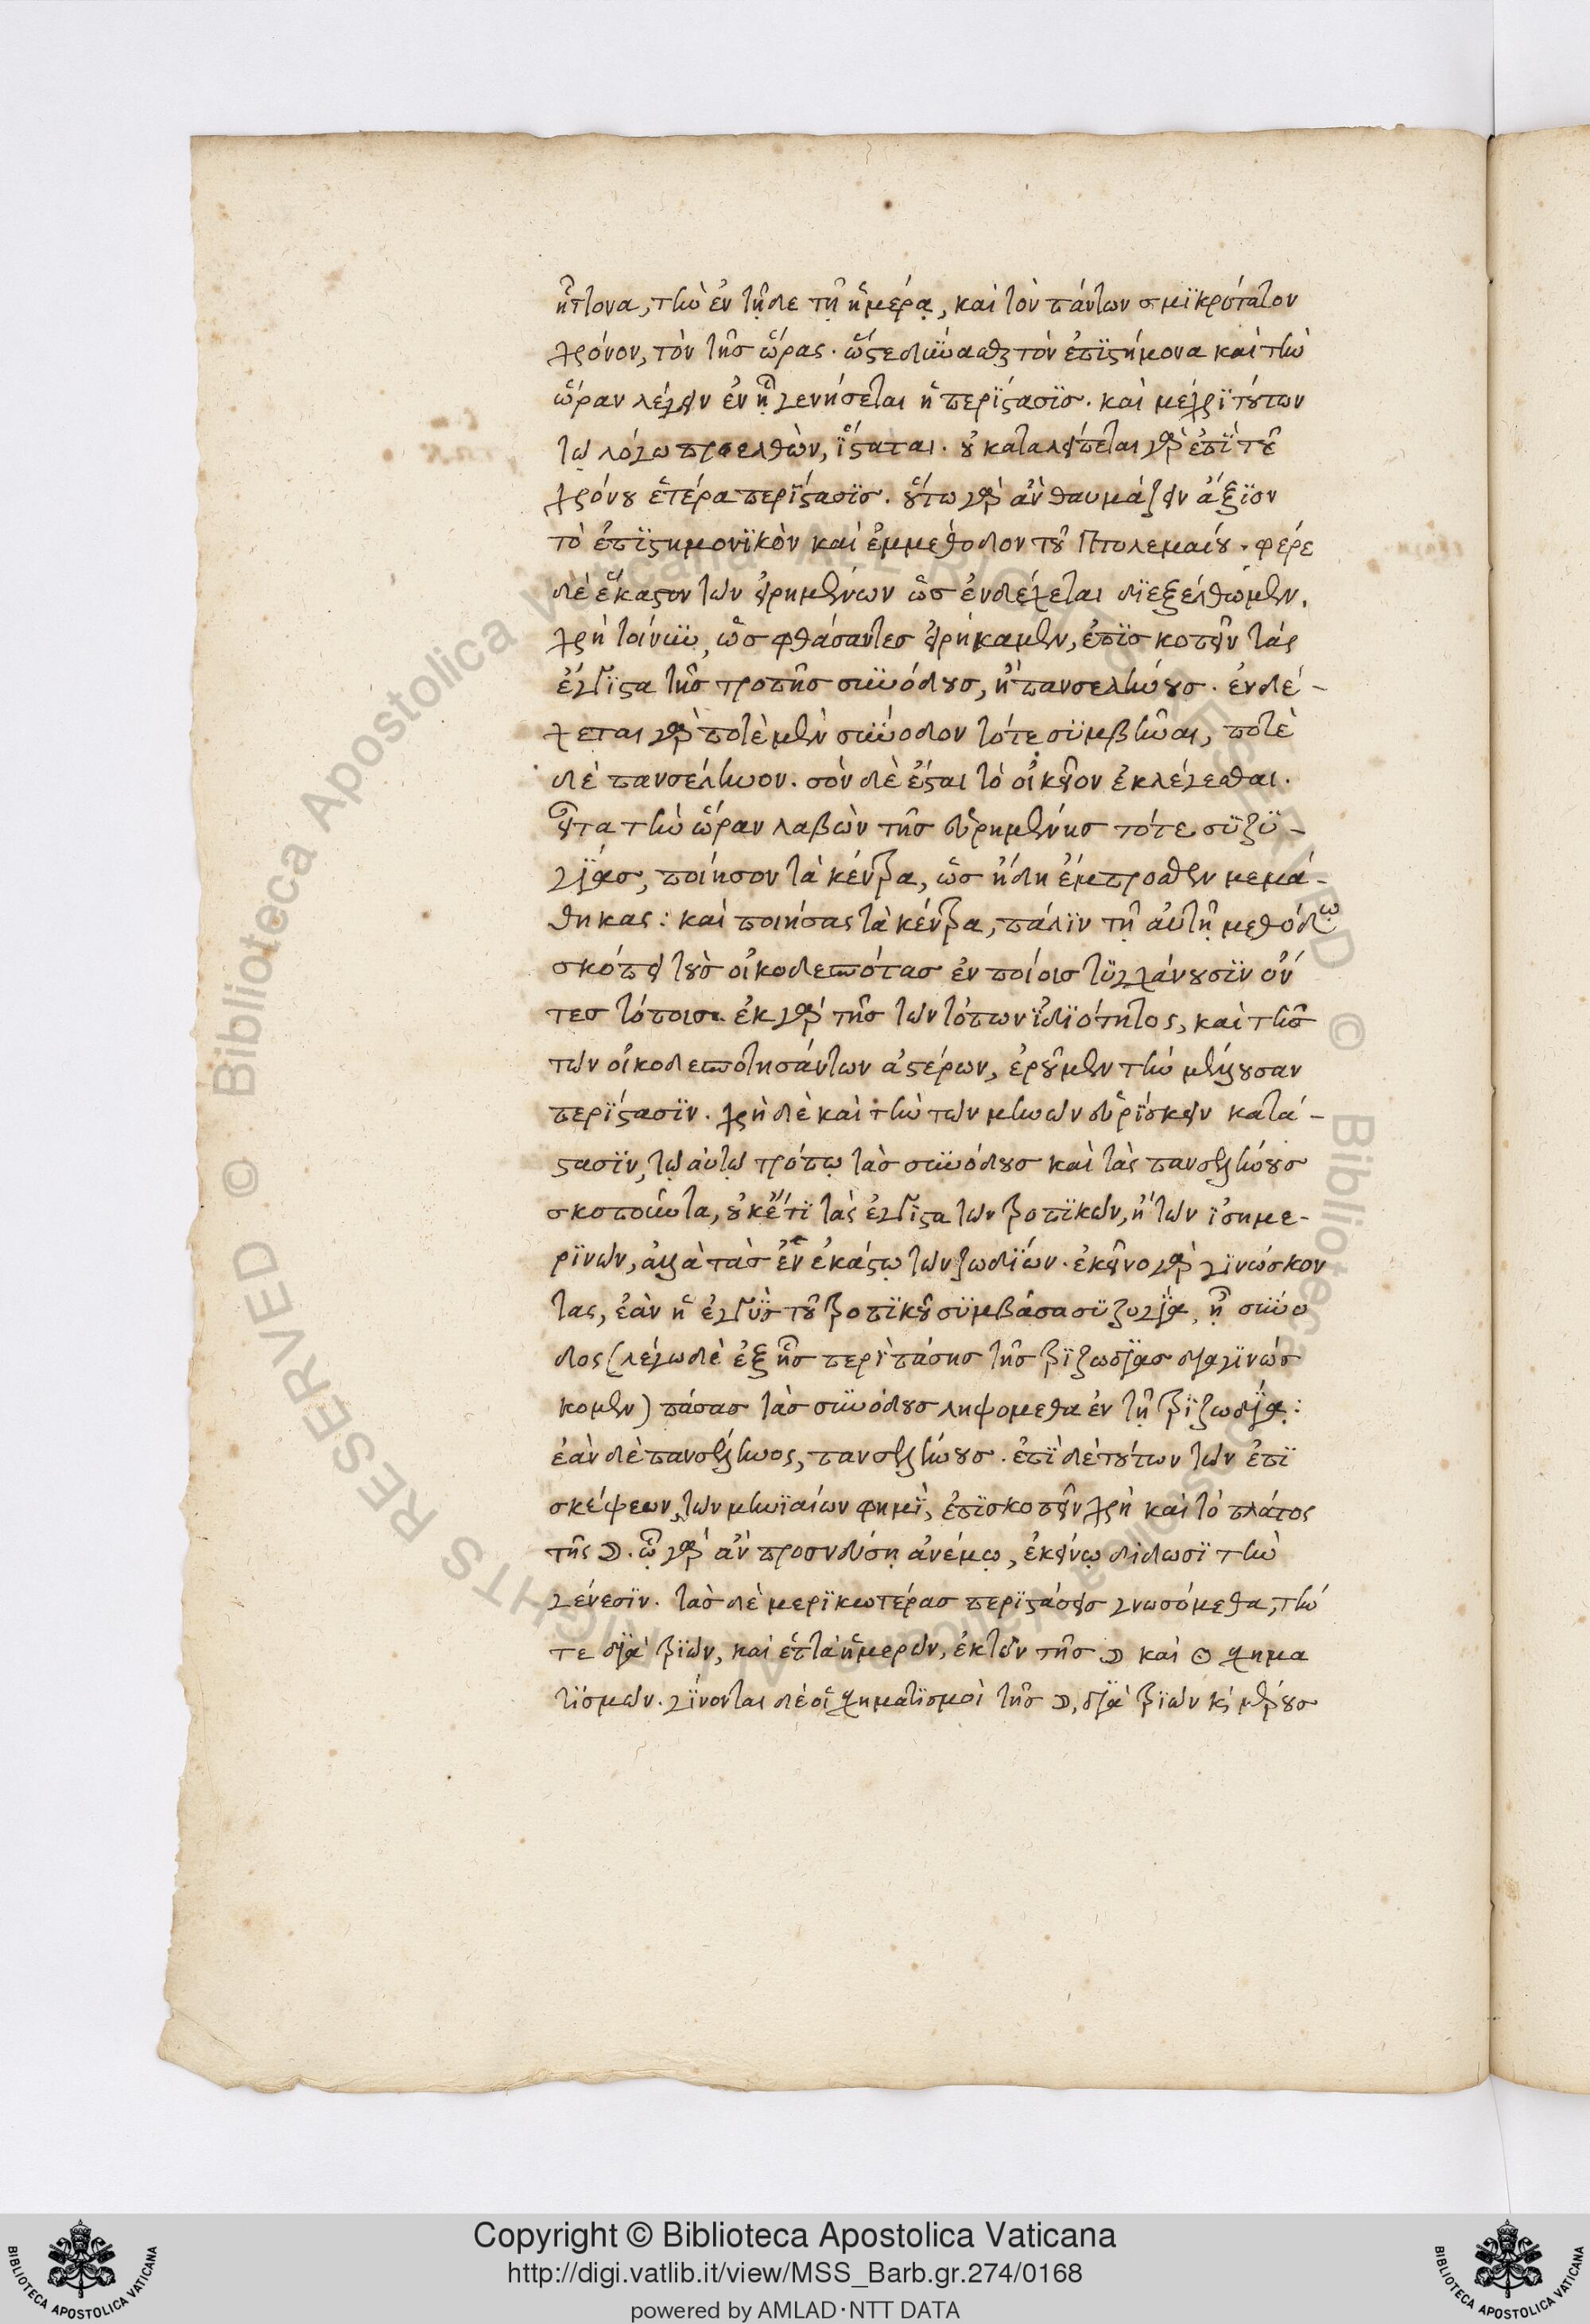 ἥττονα, τὴν ἐν τῇδε τῇ ἡμέρᾳ, καὶ τὸν πάντων σμϊκρότατον
χρόνον, τὸν τῆς ὥρας. ὥστε δύνασθαι τὸν ἐπϊστήμονα καὶ τὴν
ὥραν λέγειν ἐν ᾗ γενήσεται ἡ περΐστασϊς. καὶ μέχρϊ τούτων
τῷ λόγω προελθὼν, ἵ̈σταται. οὐ καταλείπεται γὰρ ἐπῒ τοῦ
χρόνου ἑτέρα περΐστασϊς. οὕτω γὰρ ἂν θαυμάζειν ἄξϊον
τὸ ἐπϊστημονϊκὸν καὶ ἐμμεθοδον τοῦ Πτολεμαίου. φέρε
δὲ ἕκαστον τῶν εἰρημένων ὡς ἐνδέχεται δϊεξέλθωμεν.
χρὴ τοίνυν, ὡς φθάσαντες εἰρήκαμεν, ἐπϊσκοπεῖν τὰς
ἔγγϊστα τῆς τροπῆς συνόδους, ἢ πανσελήνους. ἐνδέ-
χεται γὰρ ποτὲ μὲν σύνοδον τότε συμβῆναι, ποτὲ
δὲ πανσέληνον. σὸν δὲ ἔσται τὸ οἰκεῖον ἐκλέγεσθαι.
εἶτα τὴν ὥραν λαβὼν τῆς εὑρημένης τότε συζϋ-
γΐας, ποίησον τὰ κέντρα, ὡς ἤδη ἔμπροσθεν μεμά-
θηκας: καὶ ποιήσας τὰ κέντρα, πάλϊν τῇ αὐτῇ μεθόδω
σκόπει τοὺς οἰκοδεσπότας ἐν ποίοις τϋγχάνουσϊν ὄν
τες τόποις. ἐκ γὰρ τῆς τῶν τόπων ϊδϊότητος, καὶ τῆς
τῶν οἰκοδεσποτησάντων ἀστέρων, ἐροῦμεν τὴν μέλλουσαν
περΐστασϊν. χρὴ δὲ καὶ τὴν τῶν μηνῶν εὑρΐσκειν κατά-
στασϊν, τῷ αὐτῷ τρόπῳ τὰς συνόδους καὶ τὰς πανσελήνους
σκοποῦντα, οὐκ ἔτϊ τὰς ἔγγϊστα τῶν τροπϊκῶν, ἢ τῶν ϊσημε-
ρϊνῶν, ἀλλὰ τὰς ἐν ἑκάστῳ τῶν ζωδΐων. ἐκεῖνο γὰρ γϊνώσκον
τας, ἐὰν ἡ ἐγγῢς τοῦ τροπϊκοῦ συμβᾶσα συζυγΐα, ᾖ σύνο
δος (λέγω δὲ ἐξ ἧς περῒ πάσης τῆς τρϊζωδΐας δϊαγϊνώσ
κομεν) πάσας τὰς συνόδους ληψομεθα ἐν τῇ τρϊζωδΐᾳ:
ἐὰν δὲ πανσέληνος, πανσελήνους. ἐπῒ δὲ τούτων τῶν ἐπϊ
σκέψεων, τῶν μηνϊαίων φημῒ, ἐπϊσκοπεῖν χρὴ καὶ τὸ πλάτος
τῆς ☽. ᾧ γὰρ ἂν προσνεύση ἀνέμῳ, ἐκείνῳ δίδωσϊ τὴν
γένεσϊν. τὰς δὲ μερϊκωτέρας περϊστάσεις γνωσόμεθα, τήν
τε δϊὰ τρϊῶν, καὶ ἑπτὰ ἡμερῶν, ἐκ τῶν τῆς ☽ καὶ ☉ σχημα
τϊσμῶν. γΐνονται δὲ οἱ σχηματϊσμοὶ τῆς ☽, δϊὰ τρϊῶν κὶ
Copyright © Biblioteca Apostolica Vaticana
http://digi.vatlib.it/view/MSS_Barb.gr.274/0168
powered by AMLAD·NTT DATA
BIBLIOTECA APOSTOLICA VATICANA
BIBLIOTECA APOSTOLICA VATICANA